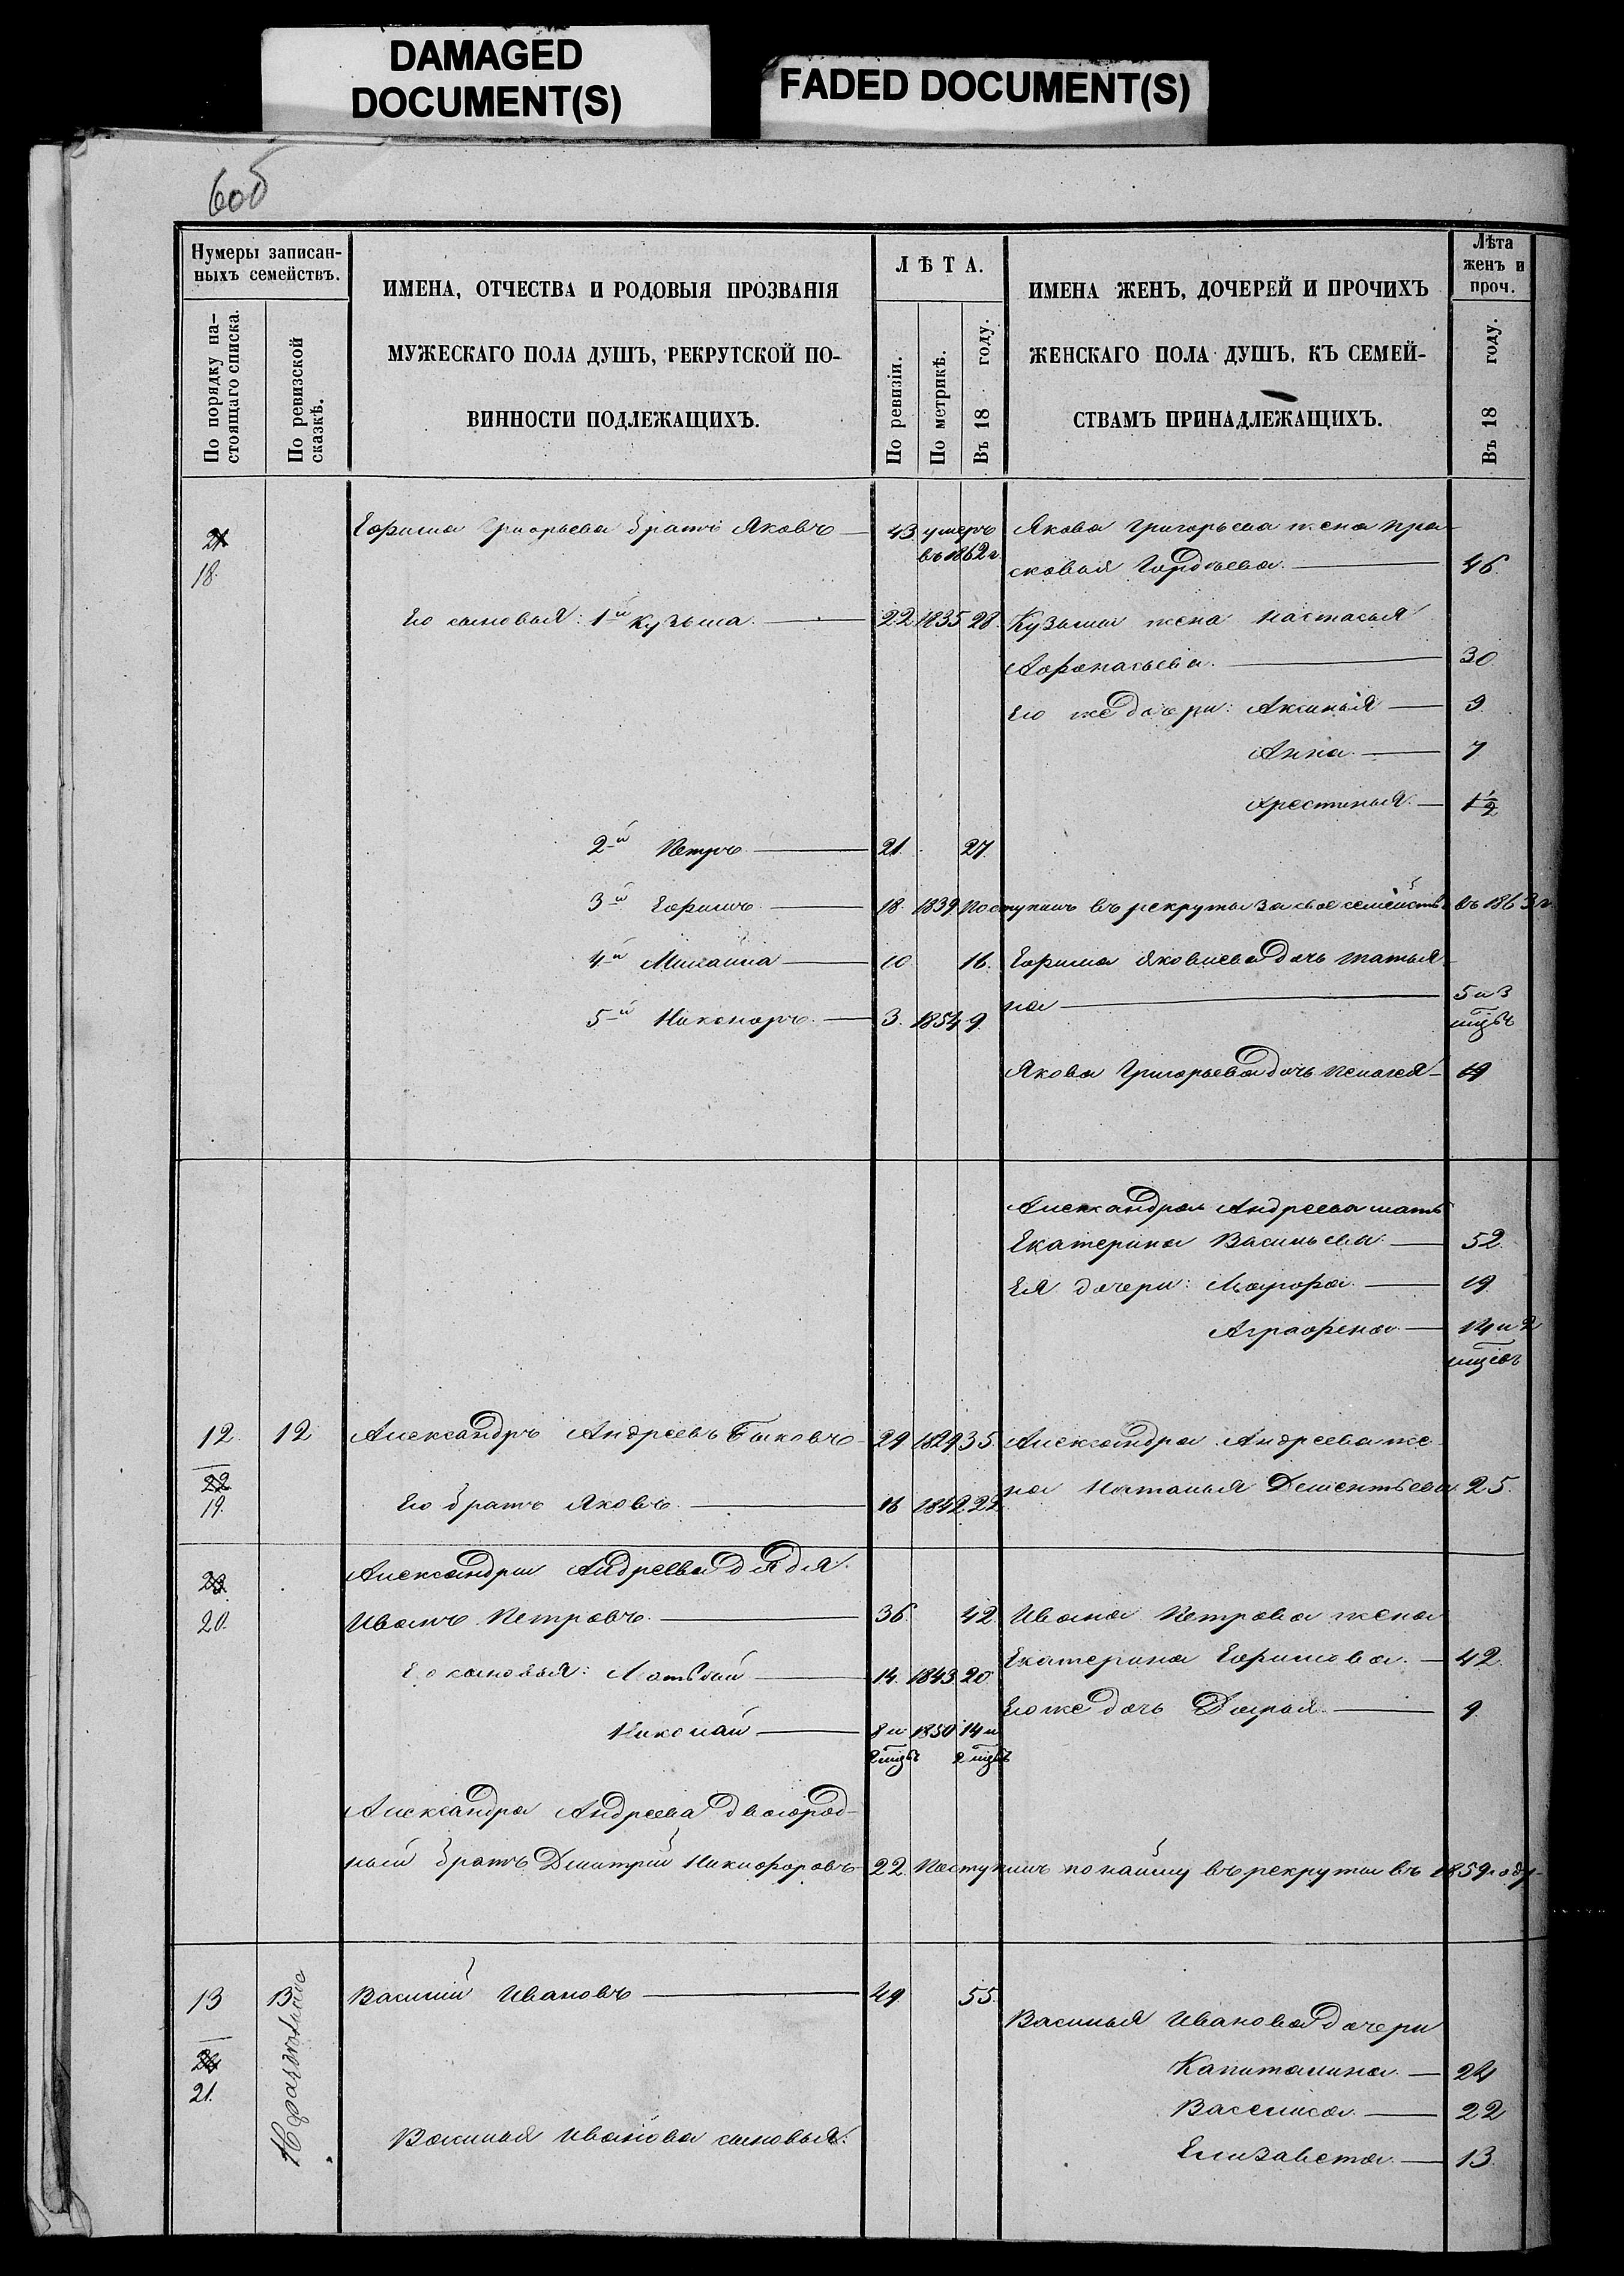 DAMAGED
DOCUMENT(S)
FADED DOCUMENT(S)
6об
Нумеры записан-
ныхъ семействъ.
По порядку на-
стоящаго списка.
По ревизской
сказкѣ.
ИМЕНА, ОТЧЕСТВА И РОДОВЫЯ ПРОЗВАНІЯ
МУЖЕСКАГО ПОЛА ДУШЪ, РЕКРУТСКОЙ ПО-
ВИННОСТИ ПОДЛЕЖАЩИХЪ.
ЛѢТА.
По ревизіи.
По метрикѣ.
Въ 18 году.
ИМЕНА ЖЕНЪ, ДОЧЕРЕЙ И ПРОЧИХЪ
ЖЕНСКАГО ПОЛА ДУШЪ, КЪ СЕМЕЙ-
СТВАМЪ ПРИНАДЛЕЖАЩИХЪ.
Лѣта
женъ и
проч.
Въ 18 году.
21 Ефима Григорьева братъ Яковъ 43 умеръ Якова Григорьева жена Пра-
18. въ 1862 г сковья Гордѣева 46
Его сыновья: 1й Кузьма 22 1835 28 Кузьмы жена Настасья
Афонасьева 30
Его же дочери: Аксинья 9
Анна 7
Хрестинья 1 1/2
2й Петръ 21 27
3й Ефимъ 18 1839 Поступилъ въ рекруты за свое семейство въ 1863 г
4й Михайла 10 16 Ефима Яковлева дочь Татья-
на 5 и 3
мцзъ
5й Никоноръ 3 1854 9
Якова Григорьева дочь Пелагея 19
Александра Андреева мать
Екатерина Васильева 52
Ея дочери: Мавра 19
Аграфена 14 и 2
мцзъ
12 12 Александръ Андреевъ Быковъ 29 1829 35 Александра Андреева же-
22 на Наталья Дементьева 25
19. Его братъ Яковъ 16 1842 22
Александра Андреева дядя
23 Иванъ Петровъ 36 42 Ивана Петрова жена
20. Екатерина Ефимова 42
Его сыновья: Матвѣй 14 1843 20
Его же дочь Дарья 9
Николай 8 и 1850 14 и
2 мцзъ 2 мцзъ
Александра Андреева двоюрод-
ный братъ Дмитрій Никифоровъ 22 Поступилъ по найму въ рекруты въ 1859 году
13 13 Василій Ивановъ 49 55
Василья Иванова дочери
24 Капиталина 24
21. Василиса 22
Василья Иванова сыновья:
Елизавета 13